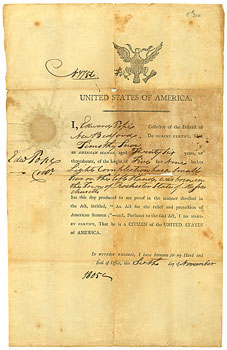 UNITED STATES OF AMERICA.
I, Edward Pope Collector of the District of
New Bedford DO HEREBY CERTIFY, That
Timothy
AN AMERICAN SEAMAN, aged Twenty Six years, or
thereabouts, of the height of Five feet inches
Light Complection has a small
Scar on the left hand was born in
the Town of Rochester State of Massa
chusetts
has this day produced to me proof in the manner directed in the
Act, intitled, "An Act for the relief and protection of
American Seamen;"—and, Pursuant to the said Act, I DO HEREBY
CERTIFY, That he is a CITIZEN of the UNITED STATES
OF AMERICA.
Edwd Pope
Collr
IN WITNESS WHEREOF, I have hereunto set my Hand
and Seal of Office, this Sixth day of November
1805